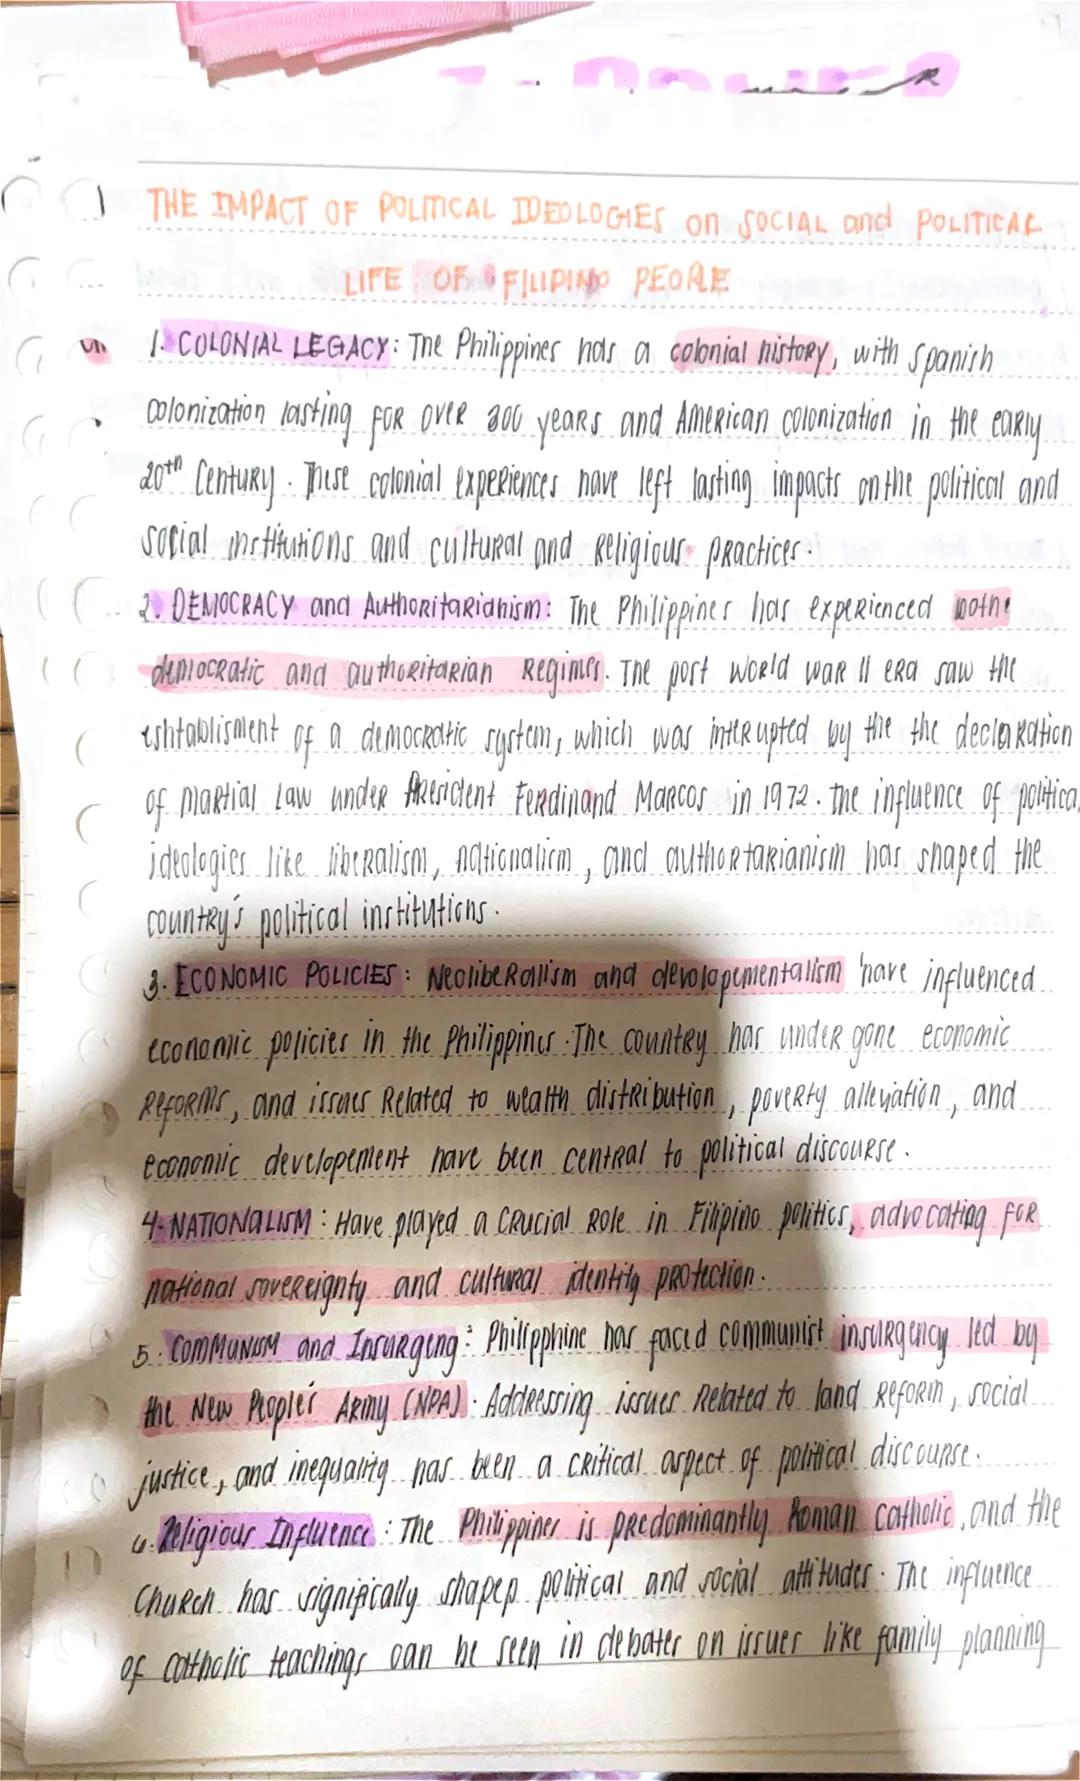 THE IMPACT OF POLITICAL IDEOLOGIES on SOCIAL and POLITICAL
LIFE OF FILIPINO PEOPLE
1. COLONIAL LEGACY: The Philippines has a colonial history, with Spanish
colonization lasting for over 300 years and American colonization in the early
20th Century. These colonial experiences have left lasting impacts on the political and
social institutions and cultural and Religious practices.
2. DEMOCRACY and Authoritarianism: The Philippines has experienced both
democratic and authoritarian Regimes. The post world war II era saw the
eshtablisment of a democratic system, which was interupted by the the declaration
of martial law under President Ferdinand Marcos in 1972. The influence of politica
ideologies like liberalism, nationalism, and authortarianism has shaped the
country's political institutions.
3. ECONOMIC POLICIES: Neoliberalism and devolopementalism have influenced
economic policies in the Philippines. The country has under gone economic
Reforms, and issues Related to wealth distribution, poverty alleviation, and
economic developement have been central to political discourse.
4. NATIONALISM: Have played a crucial Role in Filipino politics, advocating for
national sovereignty and cultural identity protection.
5. COMMUNISM and Insurgeng: Philipphine has faced communist insurgency led by
the New People's Army (NPA). Addressing issues Related to land Reform, social
justice, and inequality has been a critical aspect of political discourse.
6. Religious Influence: The Philippines is predominantly Roman catholic, and the
Church has significally shaped political and social attitudes. The influence
of catholic teachings can be seen in debates on issues like family planning